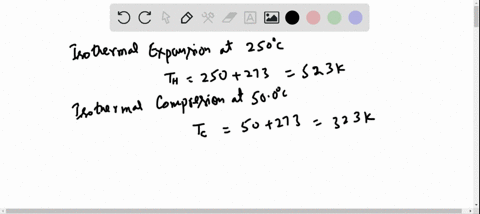 Isothermal Expansion at 250°C
T_H = 250 + 273 = 523K
Isothermal Compresion at 50.0°C
T_C = 50 + 273 = 323K